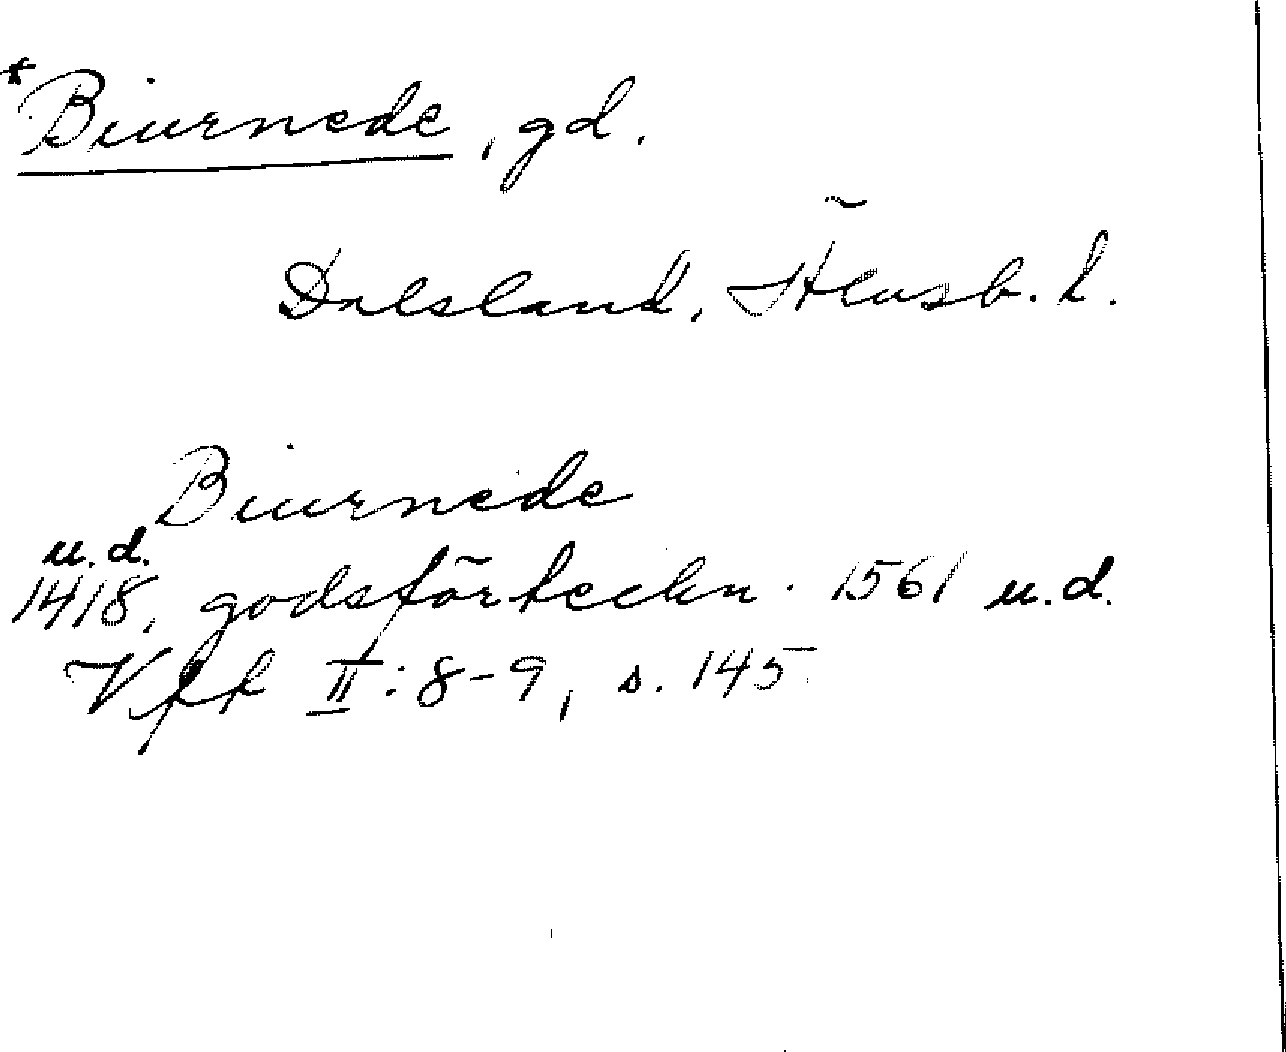 *Biurnede, gd.
Dalsland, Åkusb. h.
Biurnede
u.d.
1418, godsförteckn. 1561 u.d.
Vfk II: 8-9, s. 145